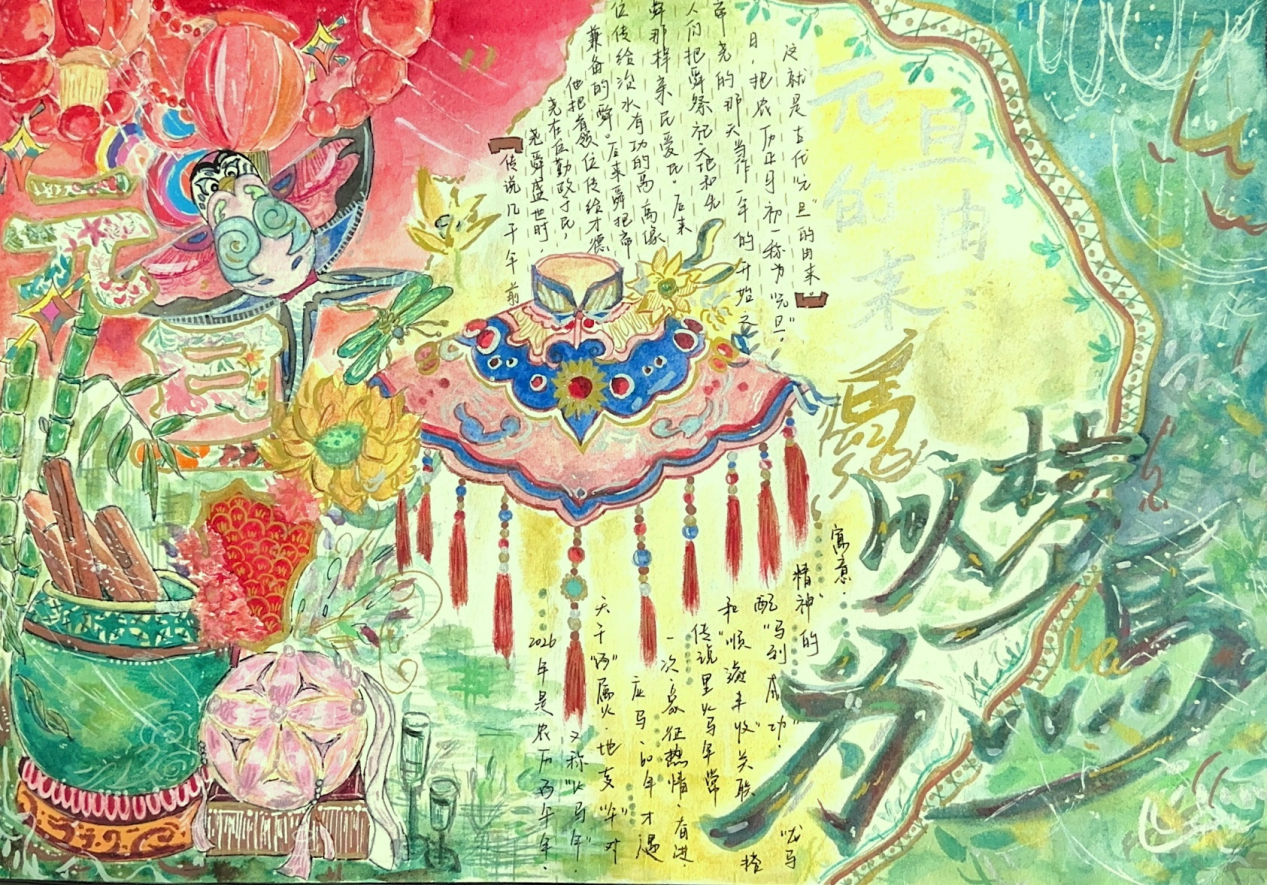 元旦
元旦的由来
【传说几千年前
尧舜盛世时
尧在位勤政于民,
他把首领位传给才德
兼备的舜。后来舜把帝
位传给治水有功的禹,禹像
舜那样亲民爱民。后来
人们把舜祭祀天地和先
帝尧的那天当作一年的开始之
日,把农历正月初一称为“元旦”,
这就是古代“元旦”的由来】
馬
2026年是农历丙午年,
又称“火马年”
天干“丙”属火,地支“午”对
应马,60年才遇
一次,象征热情、有进
传说里火马年常
和“顺遂丰收”关联
搭
配“马到成功”
“龙马
精神的
寓意.